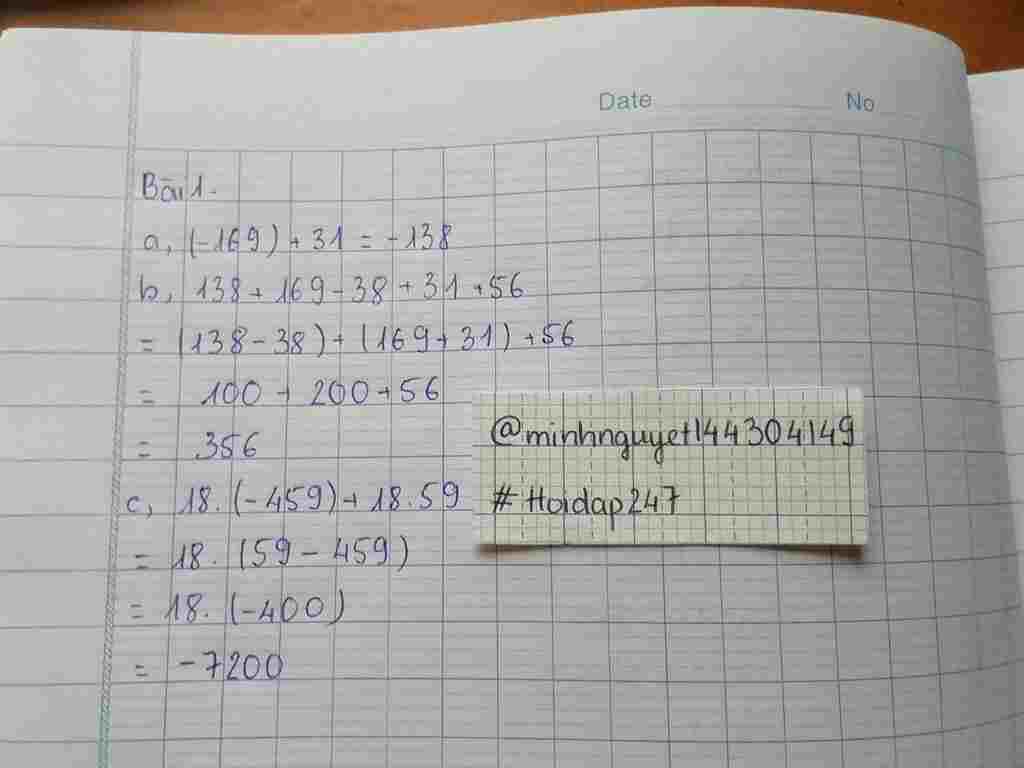 Date No
Bài 1.
a, (-169) + 31 = -138
b, 138 + 169 - 38 + 31 + 56
= (138 - 38) + (169 + 31) + 56
= 100 + 200 + 56
= 356
c, 18. (-459) + 18. 59
= 18. (59 - 459)
= 18. (-400)
= -7200
@minhnguyet144304149
# Hoidap247